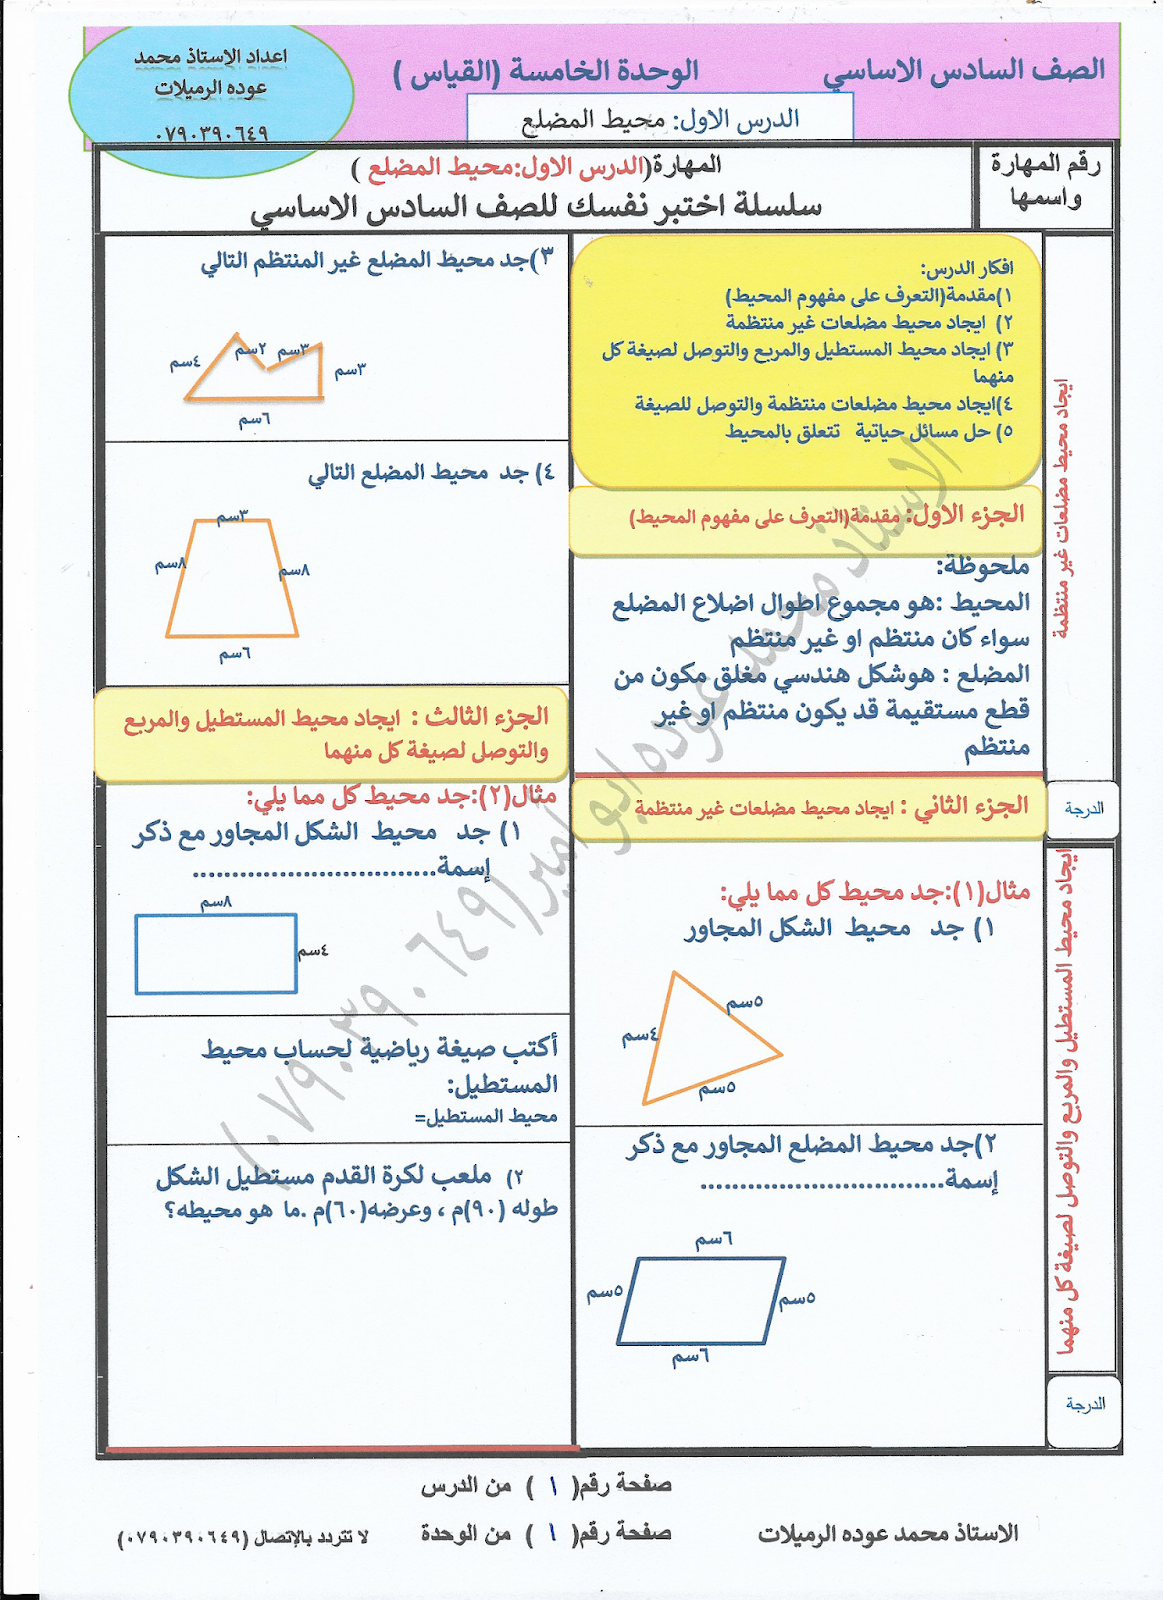 الصف السادس الاساسي
الوحدة الخامسة (القياس )
اعداد الاستاذ محمد
عوده الرميلات
٠٧٩٠٣٩٠٦٤٩
الدرس الاول: محيط المضلع
رقم المهارة
واسمها
المهارة(الدرس الاول:محيط المضلع )
سلسلة اختبر نفسك للصف السادس الاساسي
ايجاد محيط مضلعات غير منتظمة
الدرجة
ايجاد محيط المستطيل والمربع والتوصل لصيغة كل منهما
الدرجة
افكار الدرس:
١)مقدمة(التعرف على مفهوم المحيط)
٢) ايجاد محيط مضلعات غير منتظمة
٣) ايجاد محيط المستطيل والمربع والتوصل لصيغة كل
منهما
٤)ايجاد محيط مضلعات منتظمة والتوصل للصيغة
٥) حل مسائل حياتية تتعلق بالمحيط
الجزء الاول: مقدمة(التعرف على مفهوم المحيط)
ملحوظة:
المحيط :هو مجموع اطوال اضلاع المضلع
سواء كان منتظم او غير منتظم
المضلع : هوشكل هندسي مغلق مكون من
قطع مستقيمة قد يكون منتظم او غير
منتظم
الجزء الثاني : ايجاد محيط مضلعات غير منتظمة
مثال(١):جد محيط كل مما يلي:
١) جد محيط الشكل المجاور
٥سم
٤سم
٥سم
٢)جد محيط المضلع المجاور مع ذكر
إسمة..............................
٦سم
٥سم
٥سم
٦سم
٣)جد محيط المضلع غير المنتظم التالي
٤سم
٢سم
٣سم
٣سم
٦سم
٤) جد محيط المضلع التالي
٣سم
٨سم
٨سم
٦سم
الجزء الثالث : ايجاد محيط المستطيل والمربع
والتوصل لصيغة كل منهما
مثال(٢):جد محيط كل مما يلي:
١) جد محيط الشكل المجاور مع ذكر
إسمة..............................
٨سم
٤سم
أكتب صيغة رياضية لحساب محيط
المستطيل:
محيط المستطيل=
٢) ملعب لكرة القدم مستطيل الشكل
طوله (٩٠)م ، وعرضه(٦٠)م .ما هو محيطه؟
الاستاذ محمد عوده ابو امير(٠٧٩٠٣٩٠٦٤٩)
صفحة رقم( ١ ) من الدرس
الاستاذ محمد عوده الرميلات
صفحة رقم( ١ ) من الوحدة
لا تتردد بالإتصال (٠٧٩٠٣٩٠٦٤٩)